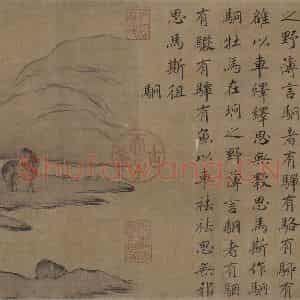 之野薄言駉者有驒有駱有駵有
雒以車繹繹思無斁思馬斯作駉
駉牡馬在坰之野薄言駉者有駰
有騢有驔有魚以車祛祛思無邪
思馬斯徂
駉
ShufaWang.CN